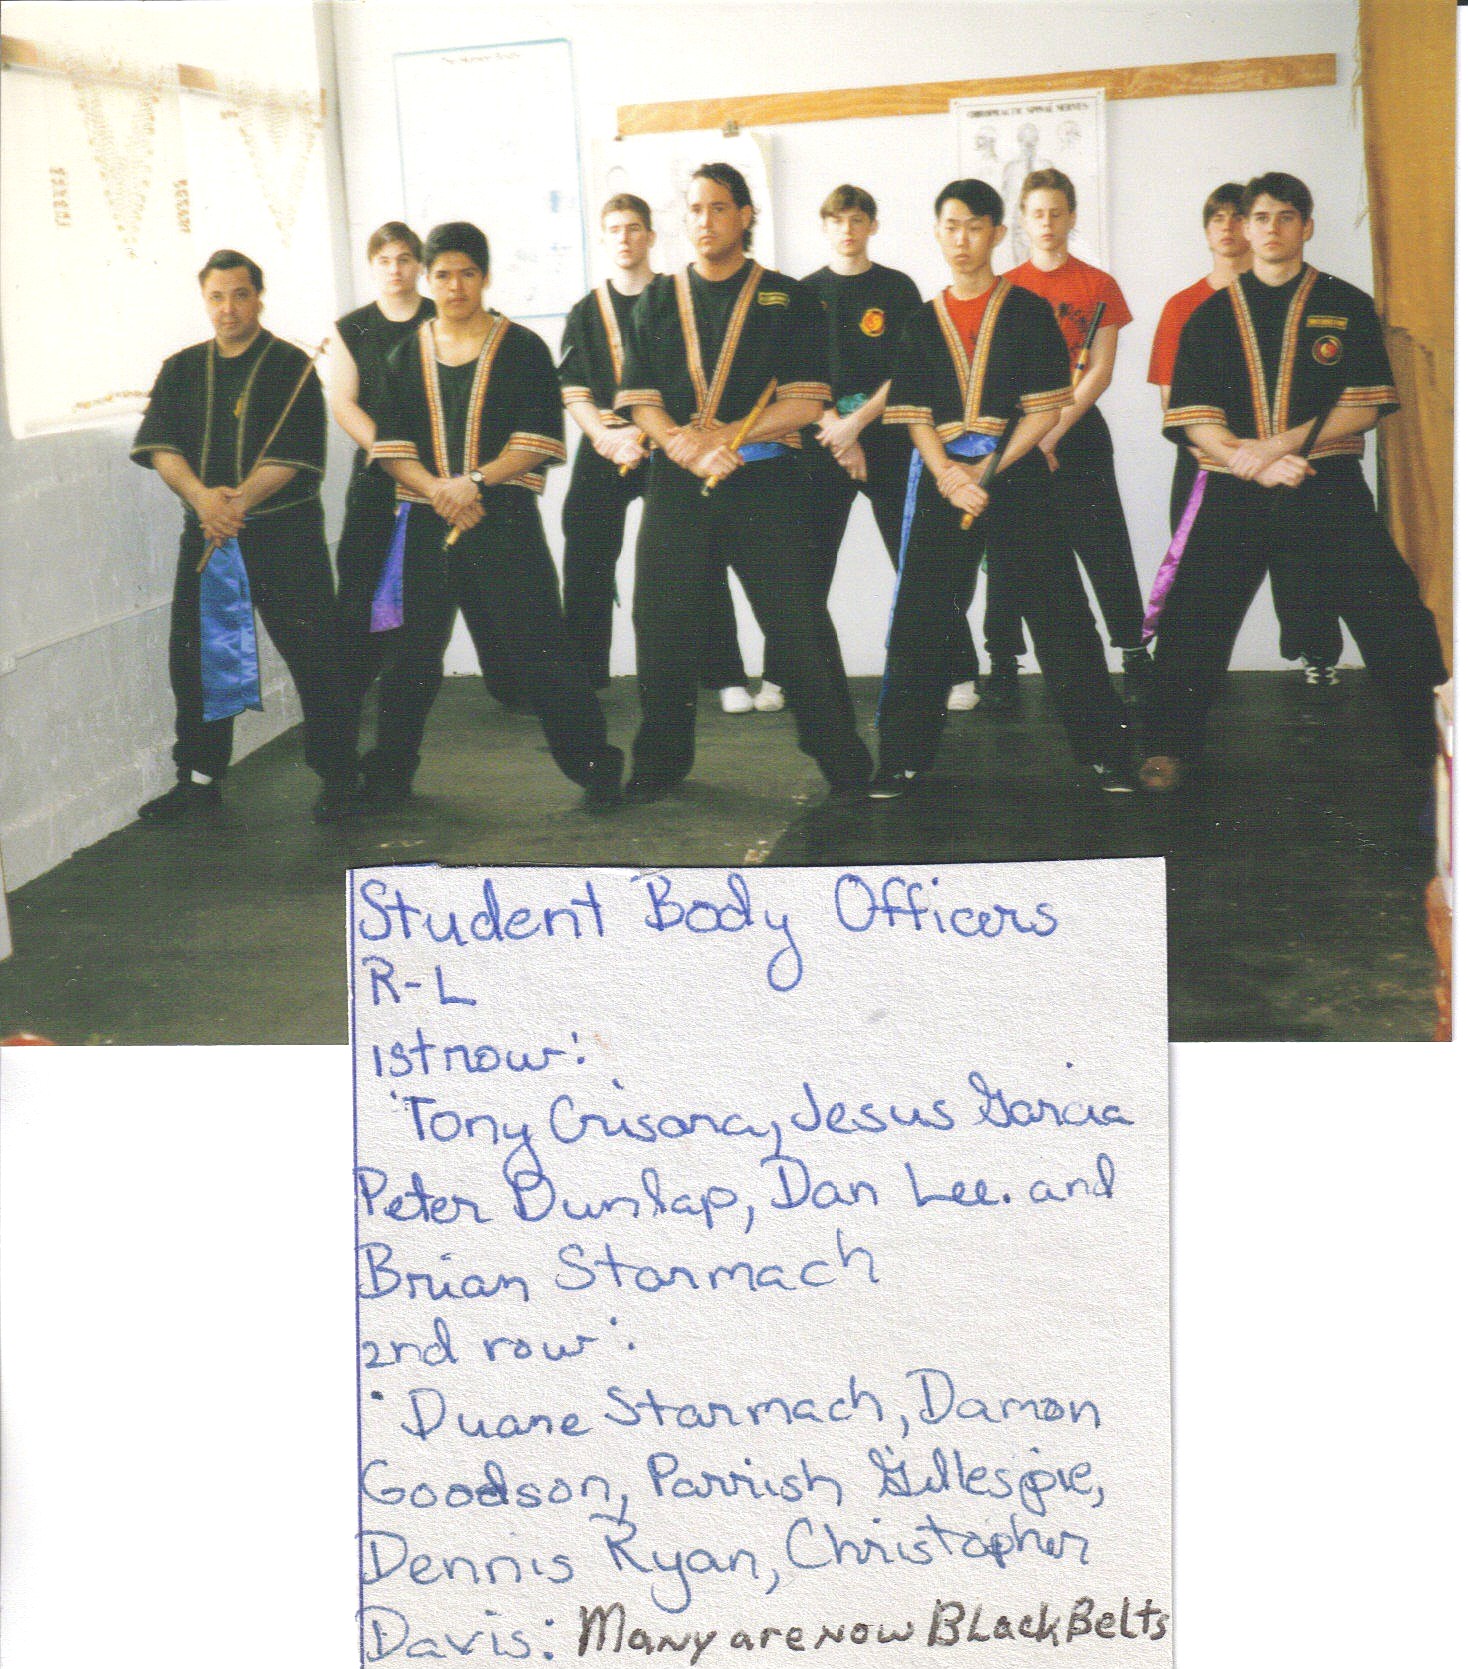 CHIROPRACTIC SPINAL NERVES
Student Body Officers
R-L
1st row:
Tony Crisara, Jesus Garcia
Peter Dunlap, Dan Lee. and
Brian Starmach
2nd row:
Duane Starmach, Damon
Goodson, Parrish Gillespie,
Dennis Ryan, Christopher
Davis: Many are now Black Belts